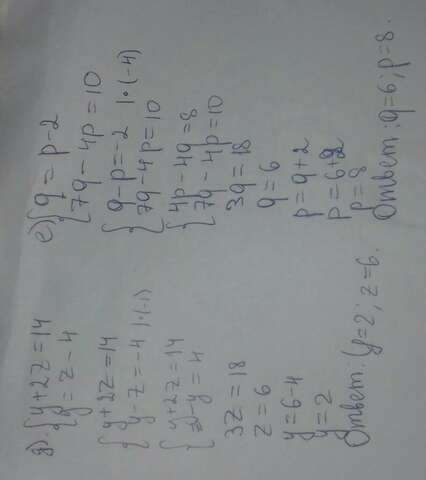 д). { y+2z=14
{ y=z-4
{ y+2z=14
{ y-z=-4 |·(-1)
{ y+2z=14
{ z-y=4
3z=18
z=6
y=6-4
y=2
Ответ: y=2; z=6.
е) { q=p-2
{ 7q-4p=10
{ q-p=-2 |·(-4)
{ 7q-4p=10
{ 4p-4q=8
{ 7q-4p=10
3q=18
q=6
p=q+2
p=6+2
p=8
Ответ: q=6; p=8.